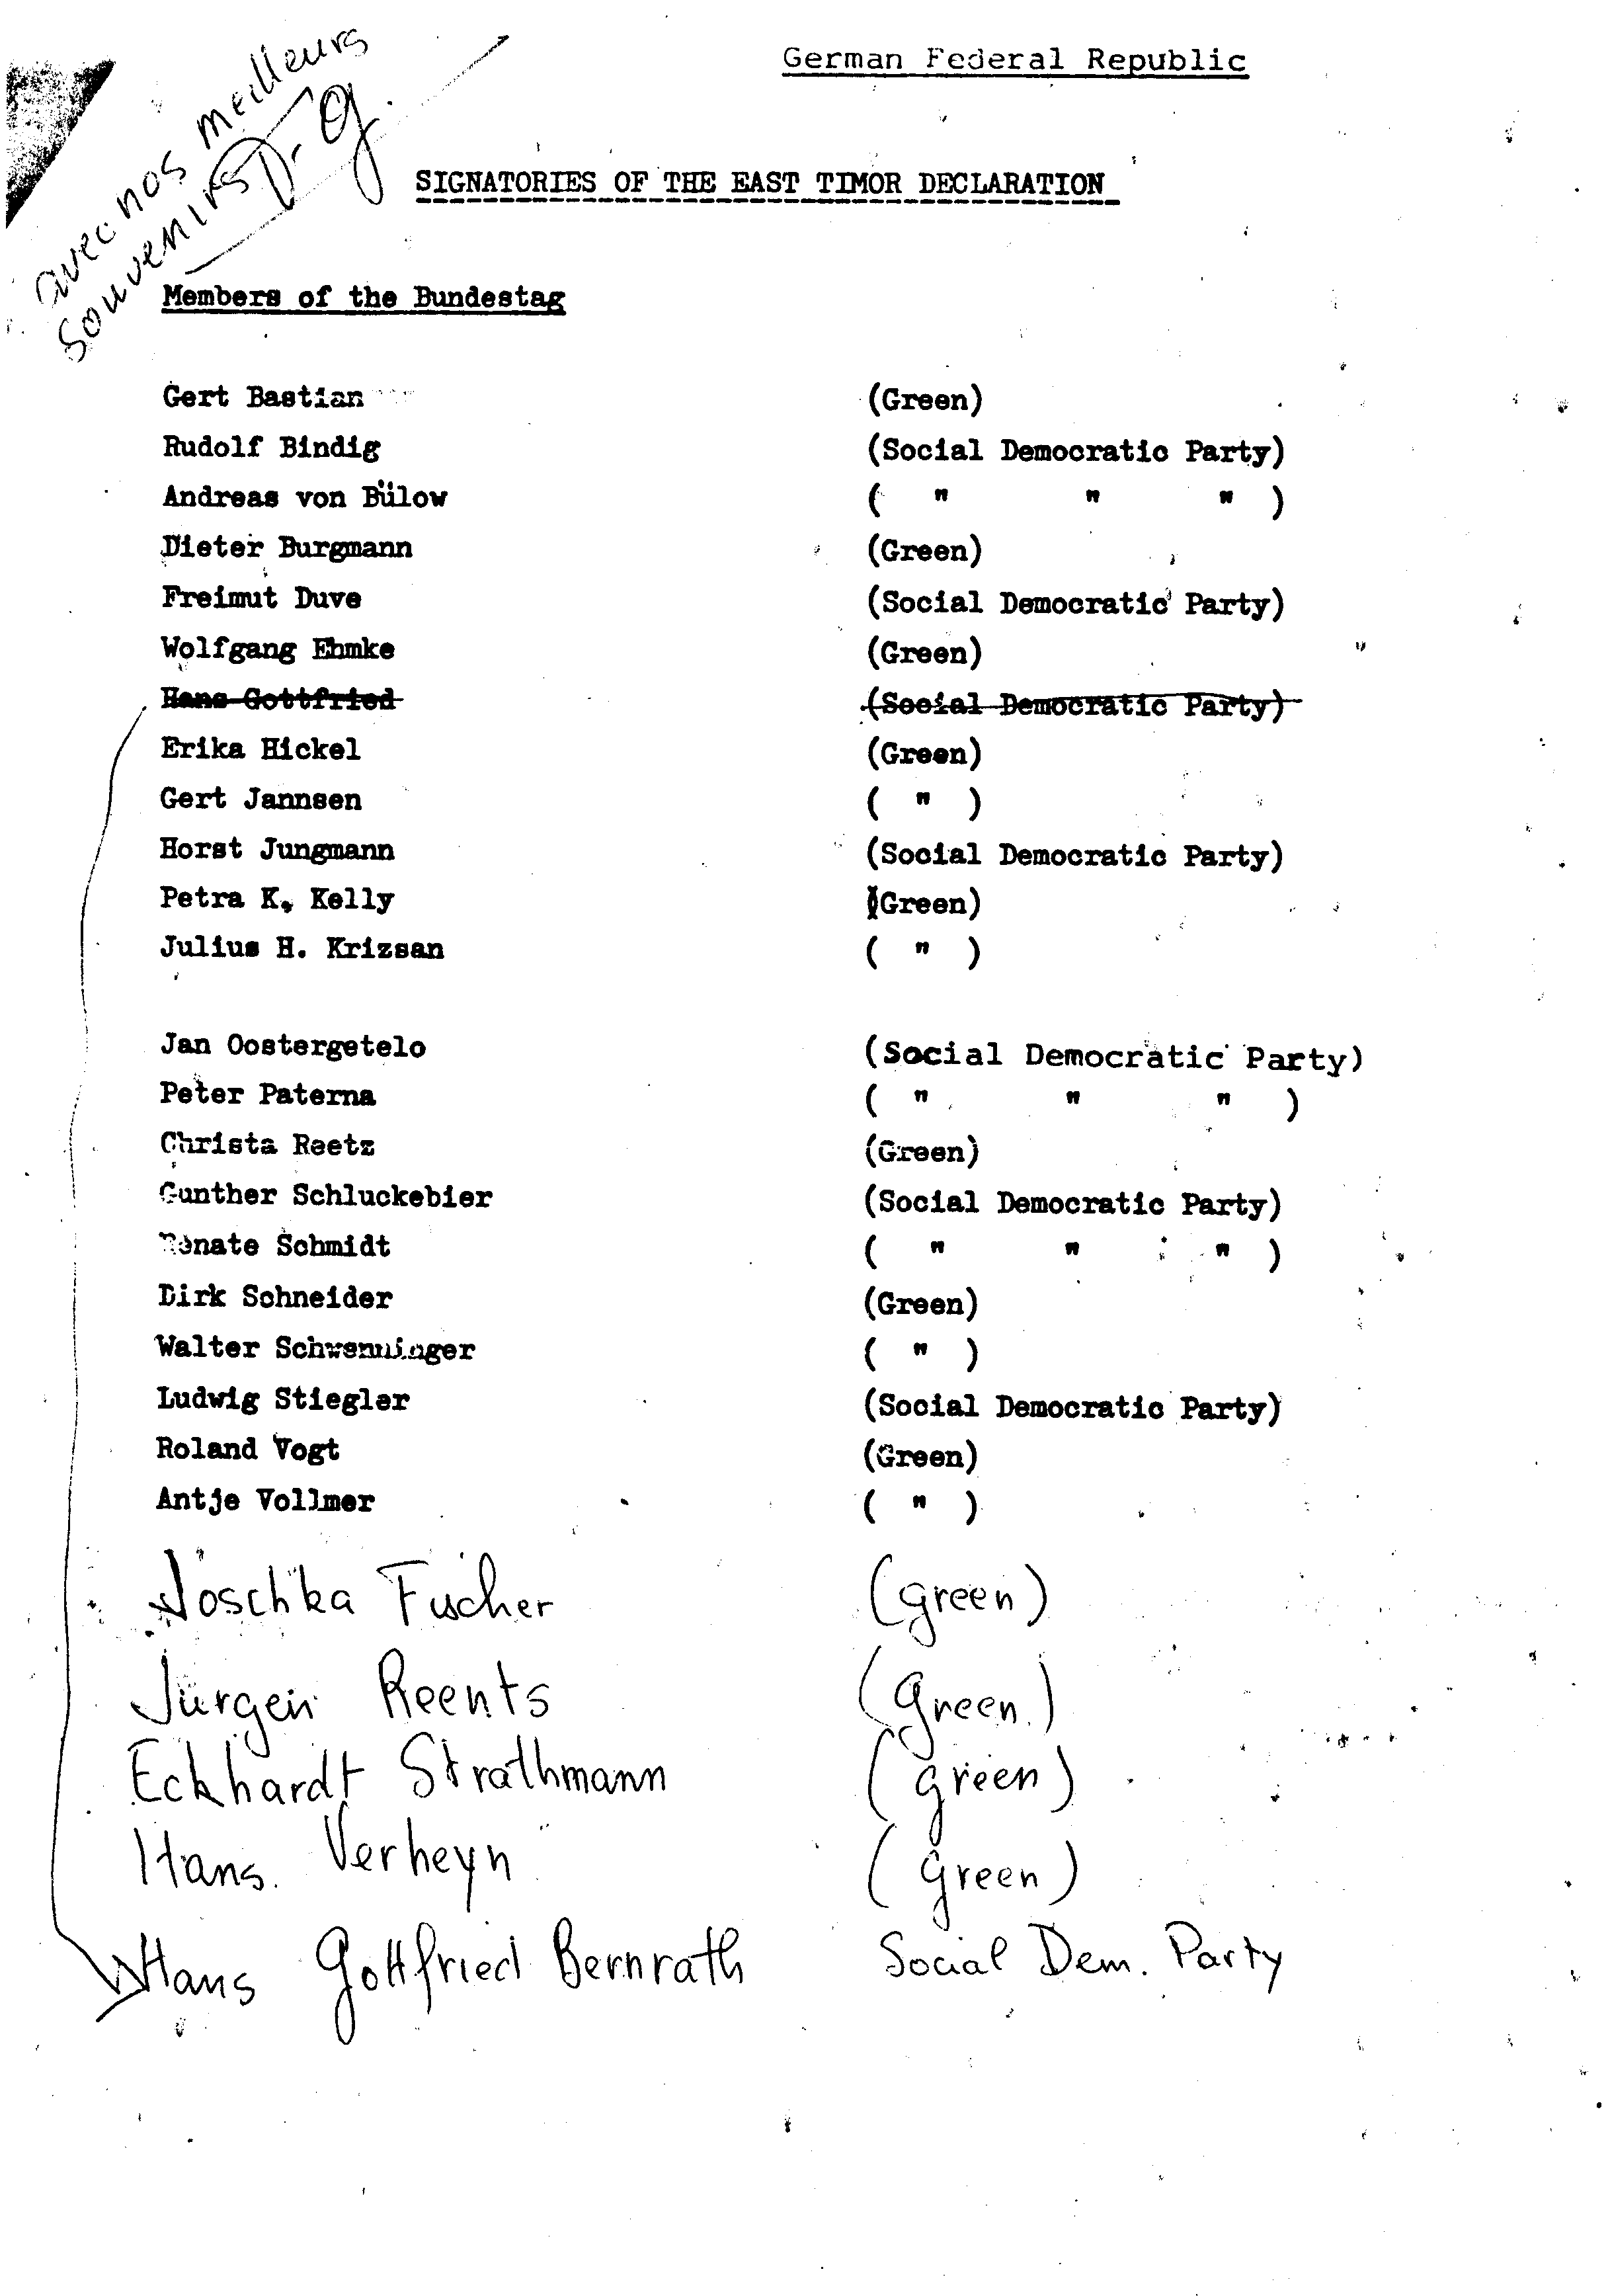 German Federal Republic
avec nos meilleurs
souvenirs
SIGNATORIES OF THE EAST TIMOR DECLARATION
Members of the Bundestag
Gert Bastian (Green)
Rudolf Bindig (Social Democratic Party)
Andreas von Bülow ( " " " )
Dieter Burgmann (Green)
Freimut Duve (Social Democratic Party)
Wolfgang Ehmke (Green)
Hans Gottfried (Social Democratic Party)
Erika Hickel (Green)
Gert Jannsen ( " )
Horst Jungmann (Social Democratic Party)
Petra K. Kelly (Green)
Julius H. Krizsan ( " )
Jan Oostergetelo (Social Democratic Party)
Peter Paterna ( " " " )
Christa Reetz (Green)
Gunther Schluckebier (Social Democratic Party)
Renate Schmidt ( " " " )
Dirk Schneider (Green)
Walter Schwenninger ( " )
Ludwig Stiegler (Social Democratic Party)
Roland Vogt (Green)
Antje Vollmer ( " )
Joschka Fischer (green)
Jürgen Reents (Green)
Eckhardt Strathmann (green)
Hans. Verheyn (green)
Hans Gottfried Bernrath Social Dem. Party